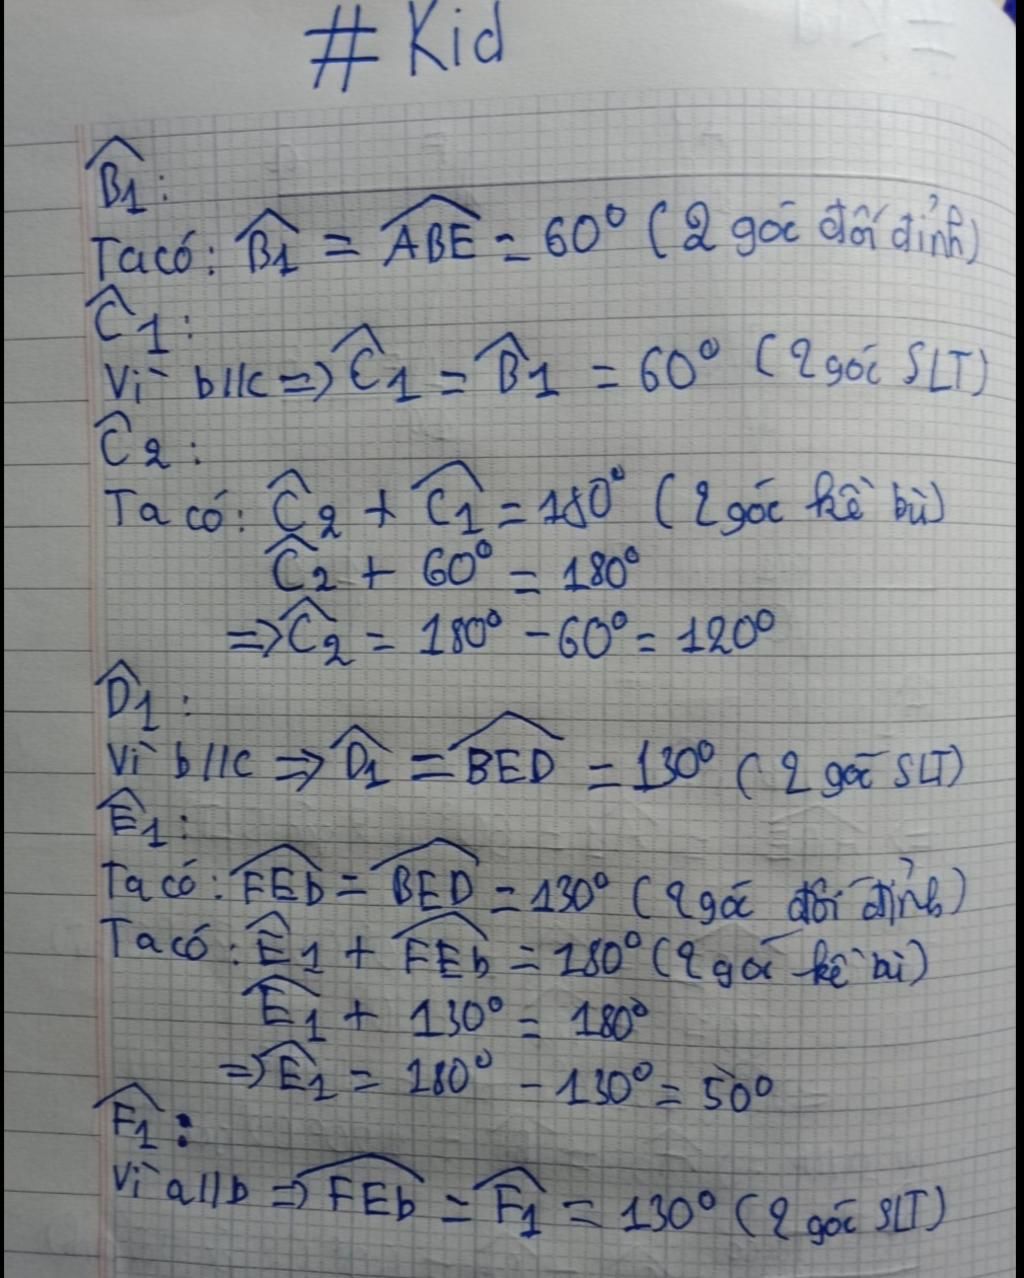 #Kid
B̂1:
Ta có: B̂1 = ABE = 60° (2 góc đối đỉnh)
Ĉ1:
Vì b//c => Ĉ1 = B̂1 = 60° (2 góc SLT)
Ĉ2:
Ta có: Ĉ2 + Ĉ1 = 180° (2 góc kề bù)
Ĉ2 + 60° = 180°
=> Ĉ2 = 180° - 60° = 120°
D̂1:
Vì b//c => D̂1 = BED = 130° (2 góc SLT)
Ê1:
Ta có: FEb = BED = 130° (2 góc đối đỉnh)
Ta có: Ê1 + FEb = 180° (2 góc kề bù)
Ê1 + 130° = 180°
=> Ê1 = 180° - 130° = 50°
F̂1:
Vì a//b => FEb = F̂1 = 130° (2 góc SLT)